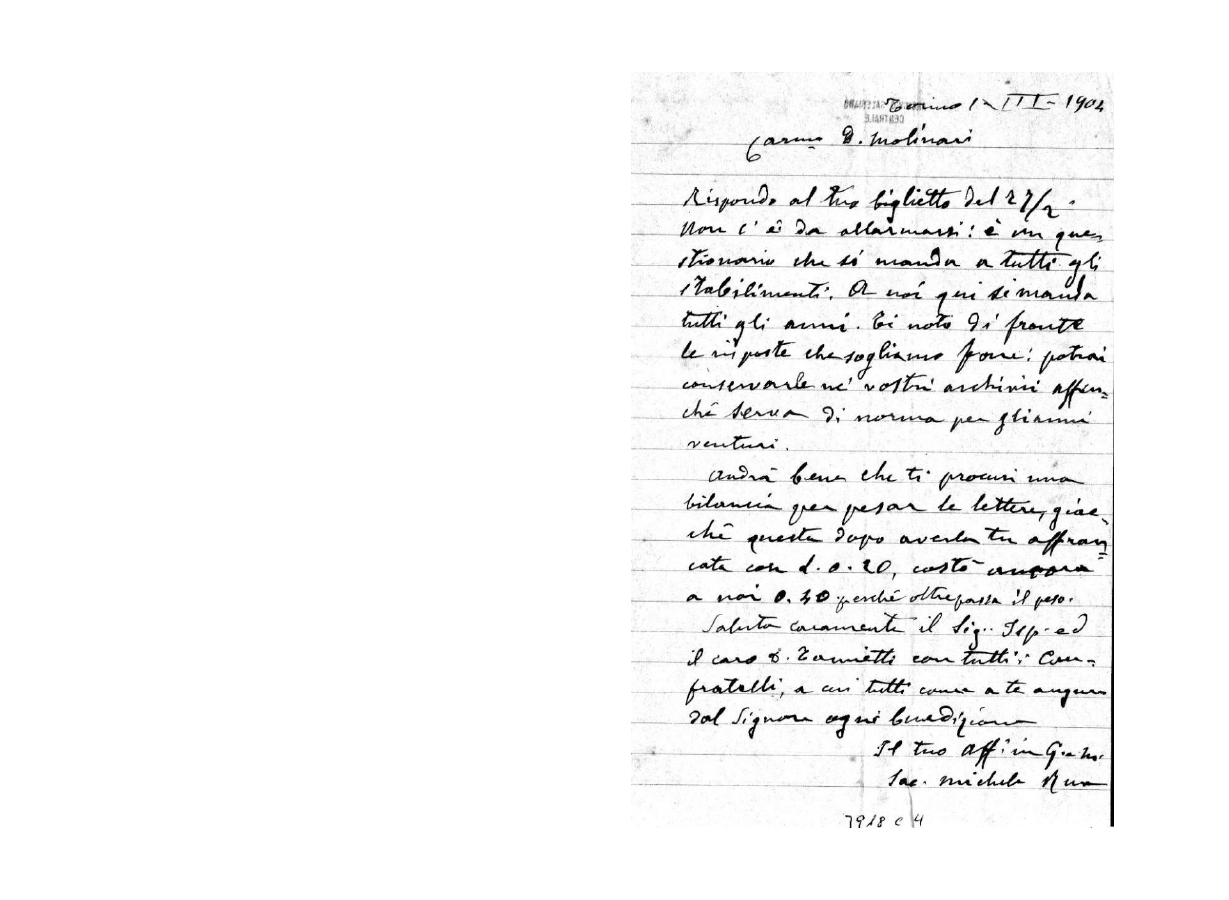 Torino 1-III-1904
CENTRALE
Carmo D. Molinari
Rispondo al tuo biglietto del 27/2.
Non c'è da allarmarsi: è un que=
stionario che si manda a tutti gli
stabilimenti. A noi qui si manda
tutti gli anni. Ti noto di fronte
le risposte che sogliamo fare: potrai
conservarle ne' vostri archivii affin=
chè serva di norma per gli anni
venturi.
Andrà bene che ti procuri una
bilancia per pesar le lettere, giac=
chè questa dopo averla tu affran=
cata con L. 0.20, costò ancora
a noi 0.40 perchè oltrepassa il peso.
Saluta caramente il Sig. Isp. ed
il caro D. con tutti i Con=
fratelli, a cui tutti come a te auguro
dal Signore ogni benedizione
Il tuo aff. in G. e M.
Sac. Michele Rua
7918 C 4